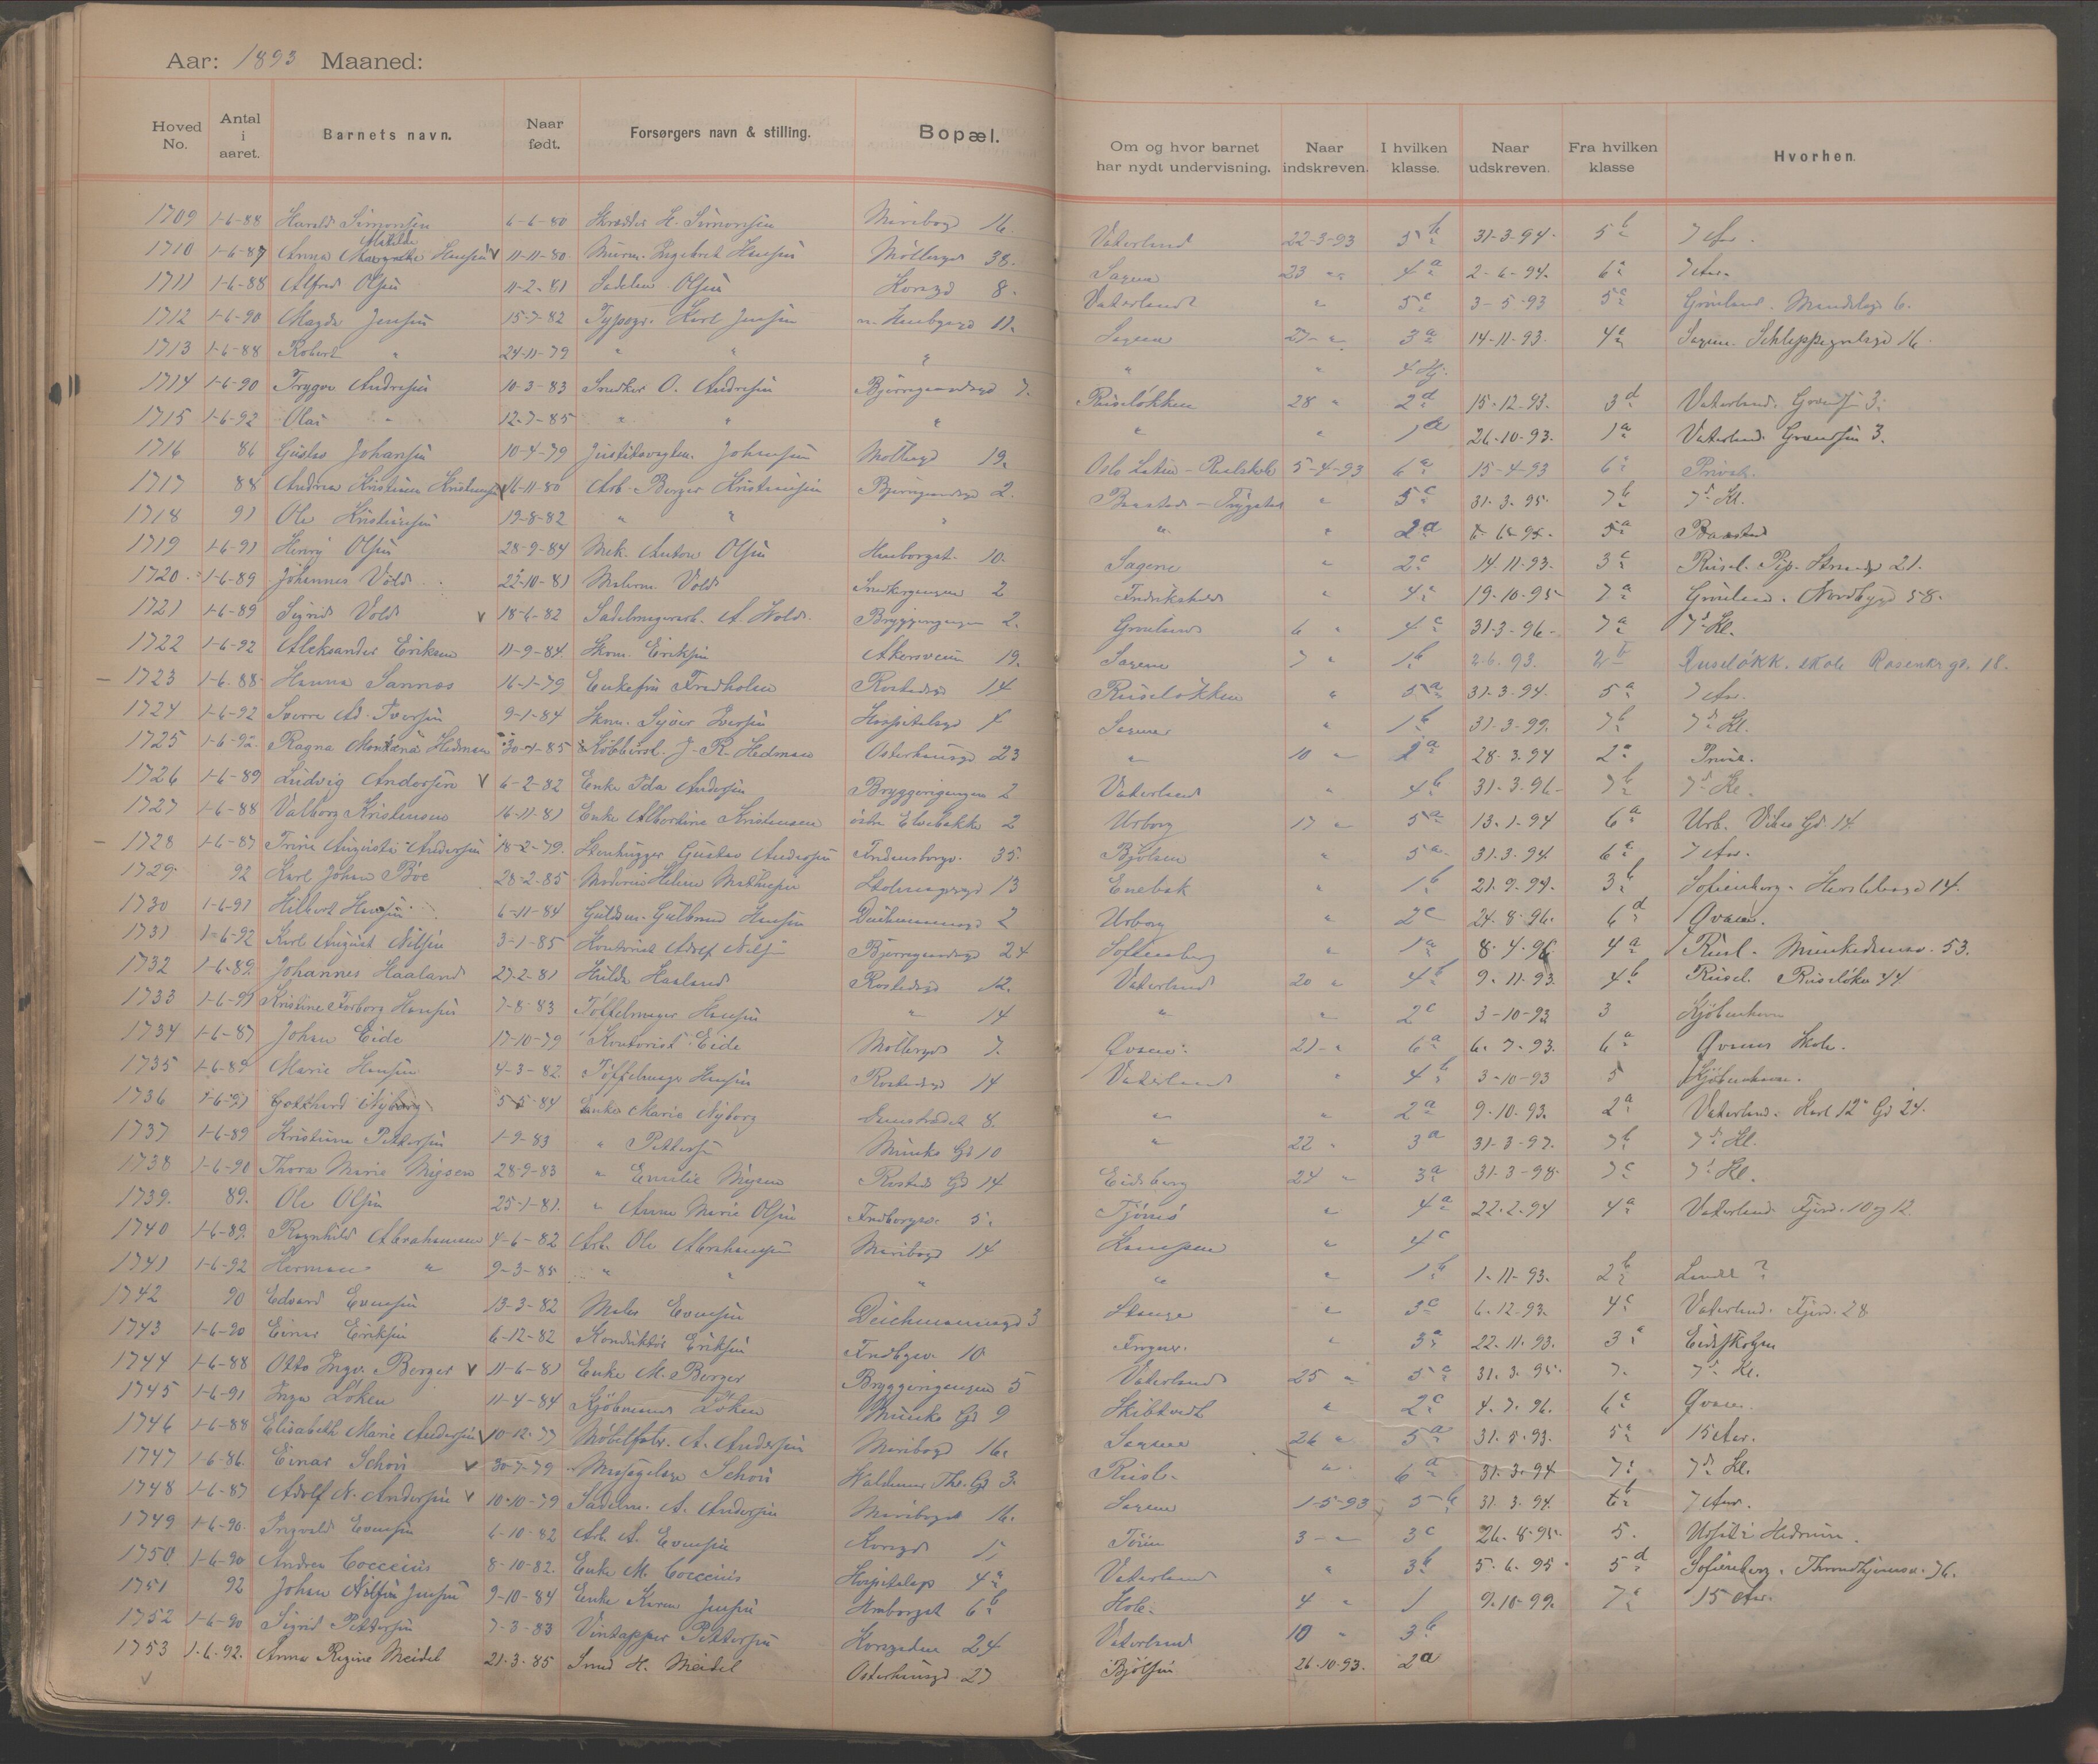 Aar: 1893 Maaned:
Hoved No. Antal i aaret. Barnets navn. Naar født. Forsørgers navn & stilling. Bopæl. Om og hvor barnet har nydt undervisning. Naar indskreven. I hvilken klasse. Naar udskreven. Fra hvilken klasse Hvorhen.
1709 1-6-88 Harald Simonsen 6-6-80 Skrædder H. Simonsen Maribogd 16. Vaterland 22-3-93 5b 31-3-94. 5b 7 Aar.
1710 1-6-87 Anna Matilde Hansen v 11-11-80 Murm. Ingebret Hansen Møllergd 38. Sagene 23 " 4a 2-6-94. 6c 7 Aar.
1711 1-6-88 Alfred Olsen 11-2-81 Sadelm. Olsen Korsgd 8. Vaterland " 5c 3-5-93 5c Grønland. 6.
1712 1-6-90 Magda Jensen 15-7-82 Typogr. Karl Jensen 11. Sagene 27 " 3a 14-11-93. 4a Sagene. Schleppegrelsgd 16.
1713 1-6-88 Robert " 24-11-79 " " " " " 4
1714 1-6-90 Trygve Andresen 10-3-83 Snedker O. Andresen Bjerregaardsgd 7. Ruseløkken 28 " 2d 15-12-93. 3d Vaterland. 3.
1715 1-6-92 Olai " 12-7-85 " " " " " 1a 26-10-93. 1a Vaterland 3.
1716 86 Gustav Johansen 10-4-79 Johansen Møllergd 19. Oslo Latin-Realskole 5-4-93 6a 15-4-93 6a Privat.
1717 88 Andrea Kristiansen v 16-11-80 Arb. Berger Kristiansen Bjerregaardsgd 2. Baastad - Trygstad " 5c 31.3.95. 7b 7d Kl.
1718 91 Ole Kristiansen 19-8-82 " " " " " 2a 5a Baastad
1719 1-6-91 Henry Olsen 28-9-84 Mek. Anton Olsen 10. Sagene " 2c 14.11.93. 3c Rusel. Pip. 21.
1720. 1-6-89 Johannes Vold 22-10-81 Malerm. Vold Snedkergangen 2 Fredrikshald " 4a 19-10-95 7a Grønland. Nordbygd 58.
1721 1-6-89 Sigrid Vold v 18-6-82 Sadelmagerarb. A. Wold. Bryggerigangen 2. Grønland 6 " 4c 31-3-96 7a 7d Kl.
1722 1-6-92 Aleksander Eriksen 11-9-84. Skom. Eriksen Akersveien 19. Sagene 7 " 1b 2.6.93. Ruseløkk. skole Rosenkr gd. 18.
1723 1-6-88 Hanna Sannæs 16-1-79 Enkefru Fredholm Rostedsgd 14 Ruseløkken " 5a 31.3.94. 5a 7 Aar.
1724 1-6-92 Sverre Ad. Iversen 9-1-84 Skom. Syver Iversen Hospitalsgd Sagene " 1b 31-3-99. 7b 7d Kl.
1725 1-6-92. Ragna Hedman J. R. Hedman Osterhausgd 23 " 10 " 28.3.94 2a Privat.
1726 1-6-89 Ludvig Andersen v 6-2-82 Enke Ida Andersen Bryggerigangen 2 Vaterland " 4b 31-3-96 7b 7d Kl.
1727 1-6-88 Valborg Kristensen 16-11-81 Enke Albertine Kristensen østre Elvebakke 2 Uranborg 17 " 5a 13-1-94 6a Urb. Vibes Gd 14
1728 1-6-87 Trine Augusta Andersen 18-2-79. Stenhugger Gustav Andersen 35. Bjølsen " 5a 31.3.94. 6a 7 Aar.
1729. 92 Karl Johan Bøe 28-2-85 Mathisen Stolmagergd 13 Enebak " 1b 21.9.94. 3b Sofienberg. Herslebsgd 14.
1730 1-6-91 Hilbert Hansen 6-11-84 Guldsm. Gulbrand Hansen Deichmannsgd 2 Urborg " 2c 24.8.96. 6d Qvæn.
1731 1-6-92 Karl August Nilsen 3-1-85 Kontorist Adolf Nilsen Bjerregaardsgd 24 Sofienberg " 1a 8.4.96 4a Rusl. Munkedamsv. 53.
1732 1-6-89. Johannes Haaland 27-2-81 Hulda Haaland Rostedsgd 12. Vaterland 20 " 4b 9.11.93. 4b Rusel. Ruseløkv 44.
1733 1-6-91 Kristine Torborg Hansen 7-8-83 Tøffelmager Hansen " 14 " " 2c 3-10-93 3 Kjøbenhavn
1734 1-6-87 Johan Eide 17-10-79 Kontorist Eide Møllergd 7. 21 " 6a 6.7.93. 6a Skole.
1735 1-6-89 Marie Hansen 4-3-82. Tøffelmager Hansen Rostedsgd 14 Vaterland " 4b 3-10-93 5 Kjøbenhavn.
1736 1-6-91 Gotthard Nyborg 5-5-84 Enke Marie Nyborg 8. " " 2a 9.10.93. 2a Vaterland. Karl 12' Gd 24.
1737 1-6-89 Kristiane Pettersen 1-9-83 " Pettersen Munks Gd 10 " 22 " 3a 31-3-97. 7b 7d Kl.
1738 1-6-90 Thora Marie Mysen 28-9-83 " Emilie Mysen Rosteds Gd 14 Eidsberg 24 " 3a 31-3-98. 7c 7d Kl.
1739. 89. Ole Olsen 25-1-81. " Anna Marie Olsen 5. Tjømø " 4a 22.2.94 4a Vaterland Fjerd. 10 og 12
1740 1-6-89. Ragnhild Abrahamsen 4-6-82 Arb. Ole Abrahamsen Maribogd 14 Kampen " 4c
1741 1-6-92 Herman " 9-3-85 " " " " " 1b 1.11.93. 2b Landet?
1742 90 Edvard Evensen 13-3-82 Maler Evensen Deichmannsgd 3 Stange " 3c 6.12.93. 4c Vaterland. Fjerd. 28
1743 1-6-90 Einar Eriksen 6-12-82 Konduktør Eriksen 10. Frogner. " 3a 22.11.93. 3a Eidskogen
1744 1-6-88 Otto Ingv. Berger v 11-6-81 Enke M. Berger Bryggerigangen 5 Vaterland 25 " 5a 31.3.95. 7. 7d Kl.
1745 1-6-91 Inga Løken 11-4-84 Kjøbmand Løken Munks Gd 9 Skibtvedt " 2c 4.7.96. 6c Qvæn.
1746 1-6-88 Elisabeth Marie Andersen v 10-12-77 A. Andersen Maribogd 16. Sagene 26 " 5a 31.5.93. 5a 15 Aar.
1747 1-6-86. Einar Schou v 30-7-79 Schou Waldemar Thr. Gd 3. Rusl. " 6a 31.3.94 7a 7d Kl.
1748 1-6-87 Adolf N. Andersen v 10-10-79 Sadelm. A. Andersen Maribogd 16. Sagene 1-5-93 5b 31.3.94. 6b 7 Aar.
1749 1-6-90. Ingvald Evensen 6-10-82 Arb. A. Evensen Korsgd 3 " 3c 26.8.95. 5. Hedrum.
1750 1-6-90 Andrea Coccinis 8-10-82. Enke M. Coccinis Hospitalsgd 4a Vaterland " 3b 5.6.95. 5d Sofienberg. Throndhjemsv. 76.
1751 92 Johan Jensen 9-10-84 Enke Karen Jensen 6b Hole. 4 " 1 9.10.99. 7a 15 Aar.
1752 1-6-90 Sigrid Pettersen 7-3-83 Vintapper Pettersen Korsgaden 24 Vaterland 10 " 3b
1753 1.6.92. Anna Regine Meidel 21.3.85 Sned H. Meidel Osterhausgd 27 Bjølsen 26.10.93. 2a
v